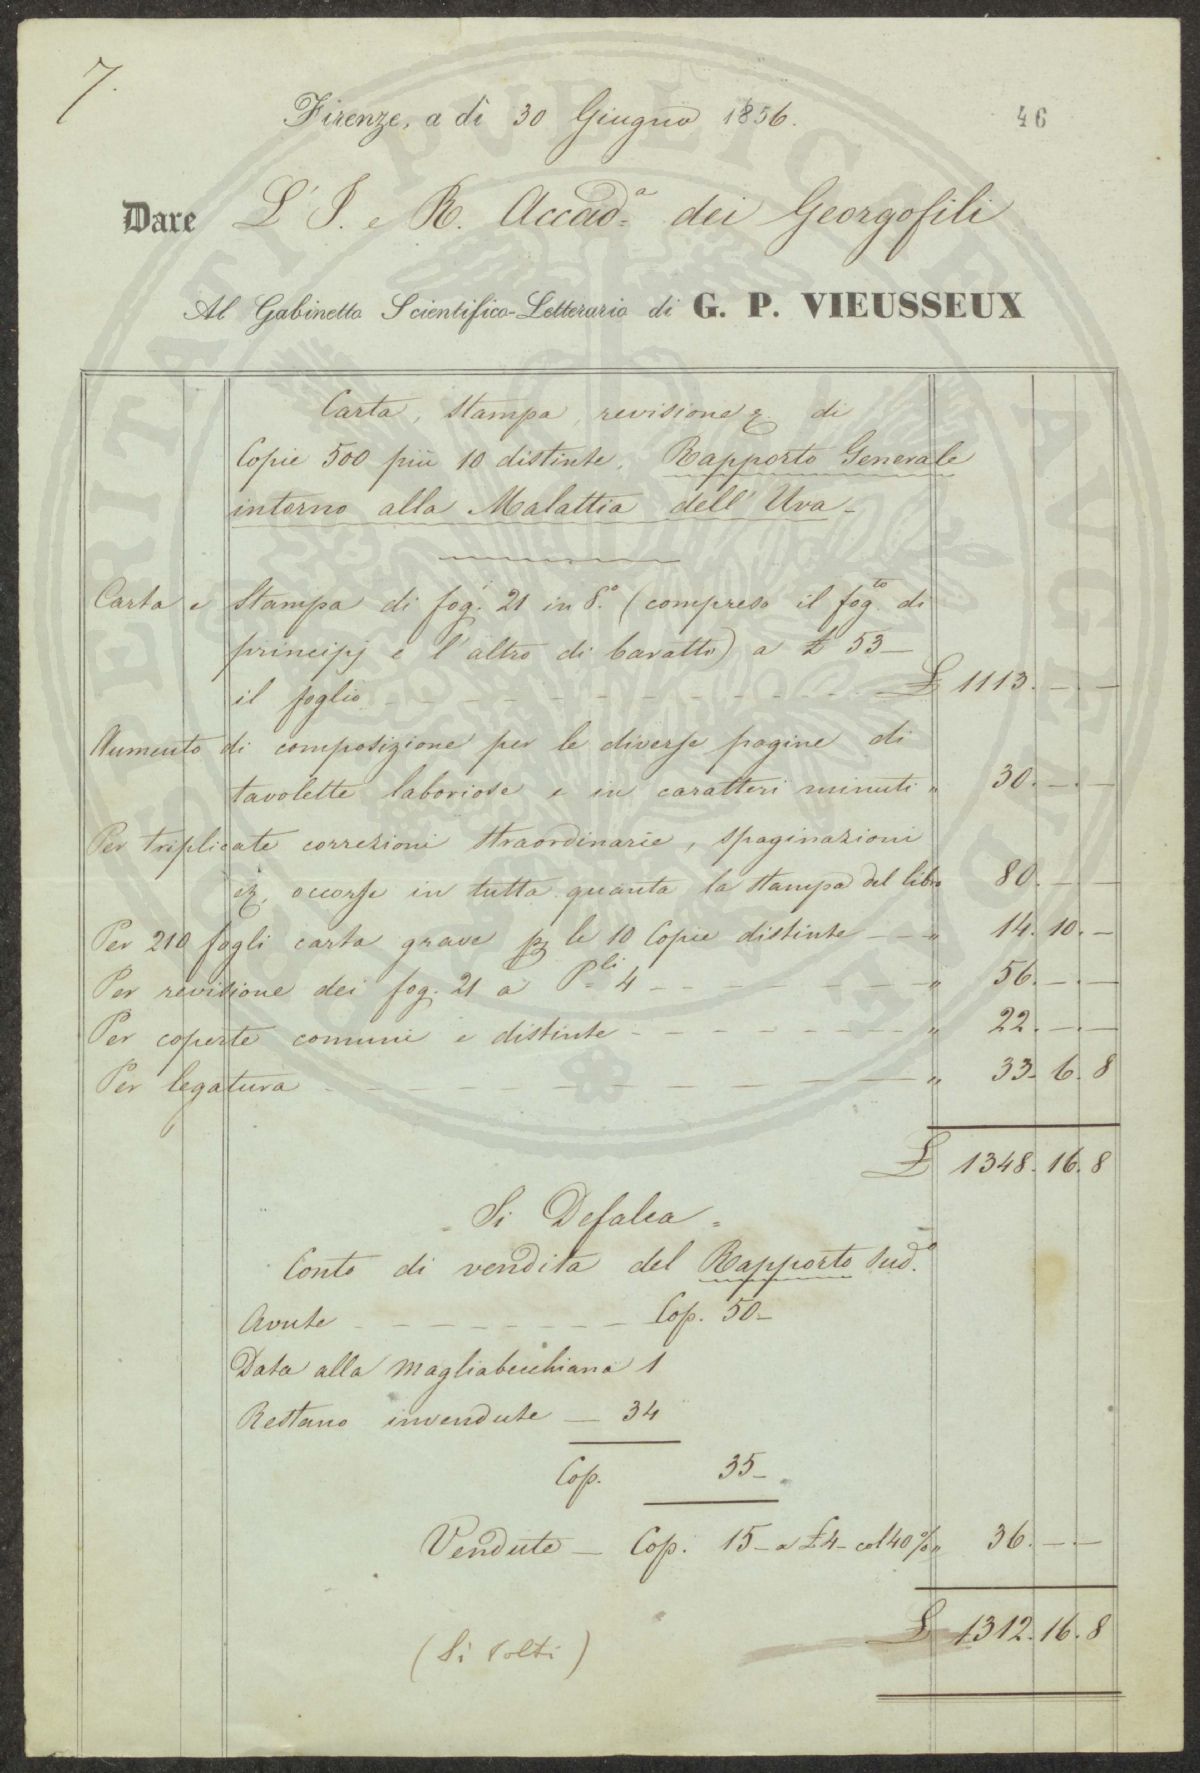 7.
Firenze, a dì 30 Giugno 1856.
46
Dare L' I. e R. Accad.ª dei Georgofili
Al Gabinetto Scientifico-Letterario di G. P. VIEUSSEUX
Carta, stampa, revisione &. di
Copie 500 più 10 distinte, Rapporto Generale
intorno alla Malattia dell' Uva -
Carta e stampa di fog.i 21 in 8.º (compreso il fog.to di
principj e l'altro di baratto) a £ 53 -
il foglio - - - - - - - - - - £ 1113. - . -
Aumento di composizione per le diverse pagine di
tavolette laboriose e in caratteri minuti " 30. - . -
Per triplicate correzioni straordinarie, spaginazioni
&, occorse in tutta quanta la stampa del libro 80. - . -
Per 210 fogli carta grave p le 10 Copie distinte - - - " 14. 10. -
Per revisione dei fog. 21 a P.li 4 - - - - - - - " 56. - . -
Per coperte comuni e distinte - - - - - - - - " 22. - . -
Per legatura - - - - - - - - - - " 33. 6. 8
£ 1348. 16. 8
= Si Defalca =
Conto di vendita del Rapporto sud.º
Avute - - - - - - - - Cop. 50 -
Data alla Magliabechiana 1
Restano invendute - 34
Cop. 35 -
Vendute - Cop. 15 - a £ 4 - col 40 % " 36. - . -
£ 1312. 16. 8
(Si volti)
PROSPERITATI PUBLICAE AUGENDAE